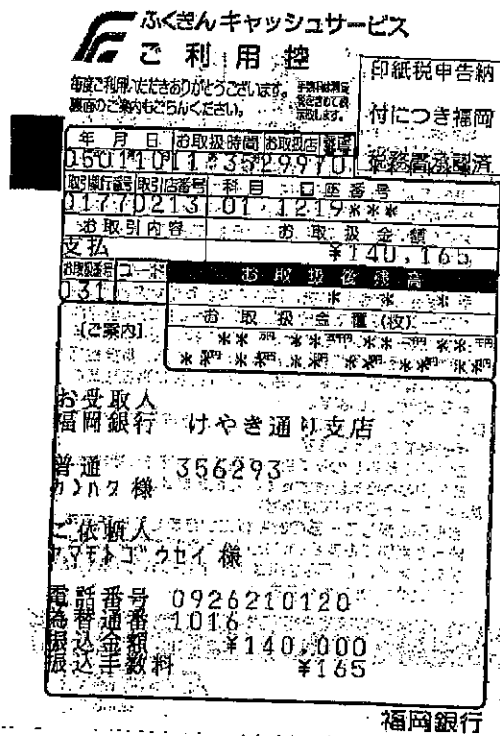 ふくぎんキャッシュサービス
ご利用控
毎度ご利用いただきありがとうございます。
裏面のご案内もごらんください。
印紙税申告納
付につき福岡
税務署承認済
年月日 お取扱時間 お取扱店
050110 11:35 29970
取引銀行番号 取引店番号 科目 口座番号
0177 0213 01 1219***
お取引内容 お取扱金額
支払 ¥140,165
お取扱番号 コード お取扱後残高
031
お取扱金種(枚)
[ご案内]
お受取人
福岡銀行 けやき通り支店
普通 356293
様
ご依頼人
ヤマモトゴウセイ 様
電話番号 0926210120
為替通番 1016
振込金額 ¥140,000
振込手数料 ¥165
福岡銀行